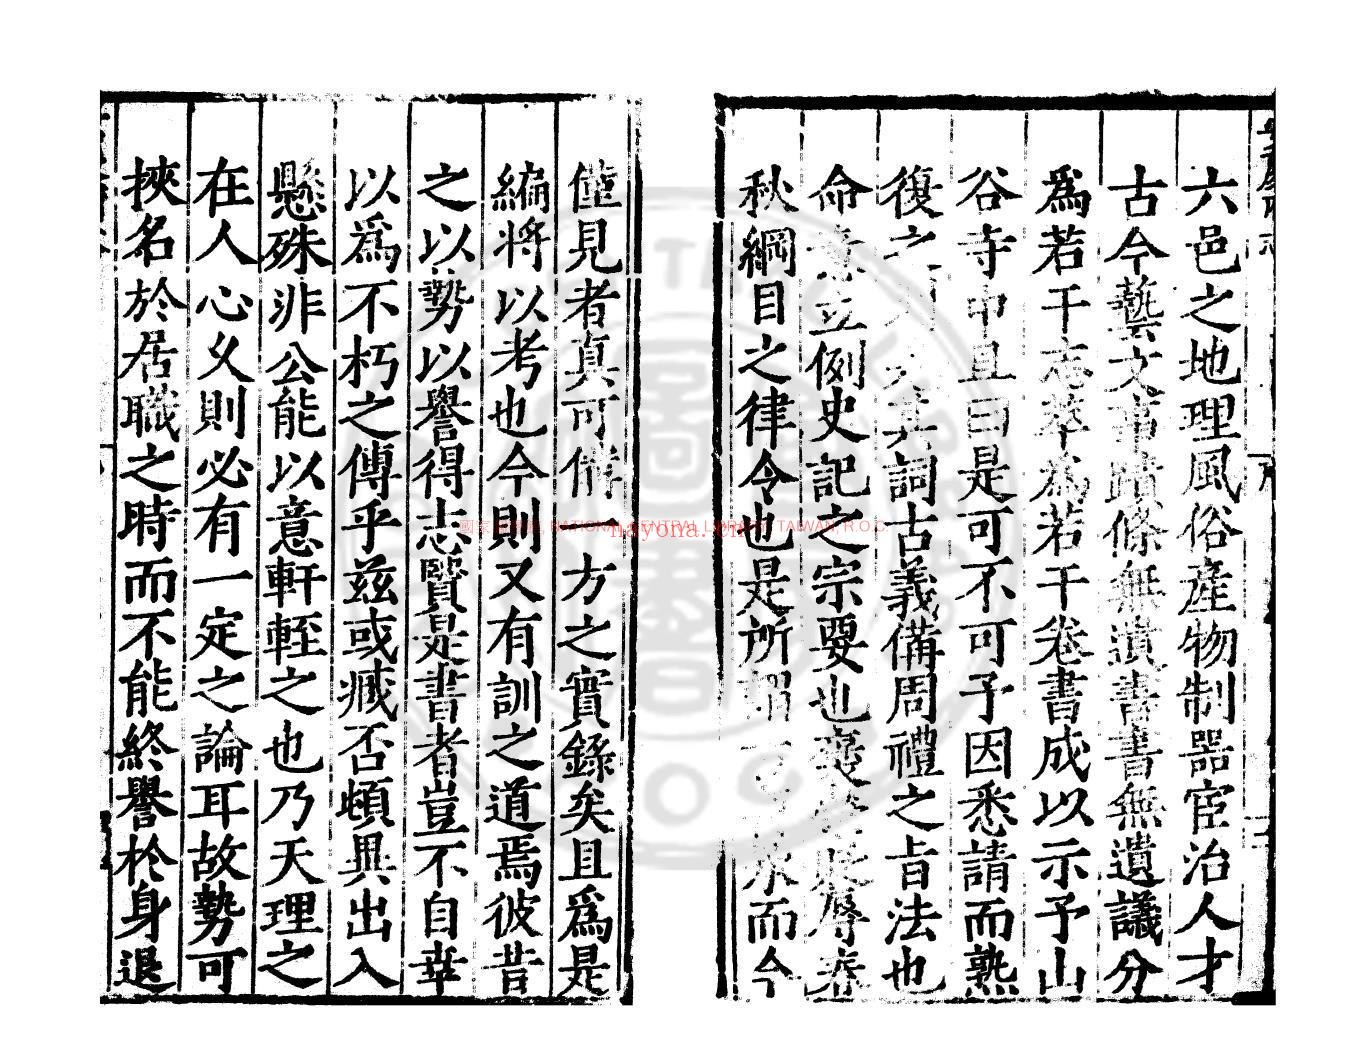 六邑之地理風俗產物制器宦治人才
古今藝文事蹟條無遺書書無遺議分
為若干志萃為若干卷書成以示予山
谷寺中且曰是可不可予因悉請而熟
復之 其詞古義備周禮之旨法也
命意立例史記之宗要也 辱春
秋綱目之律令也是所 而今
僅見者真可備一方之實錄矣且為是
編將以考也今則又有訓之道焉彼昔
之以勢以譽得志賢是書者豈不自幸
以為不朽之傳乎茲或臧否頓異出入
懸殊非公能以意軒輊之也乃天理之
在人心久則必有一定之論耳故勢可
挾名於居職之時而不能終譽於身退
國家圖書館 NATIONAL CENTRAL LIBRARY, TAIWAN, R.O.C
nayona.cn